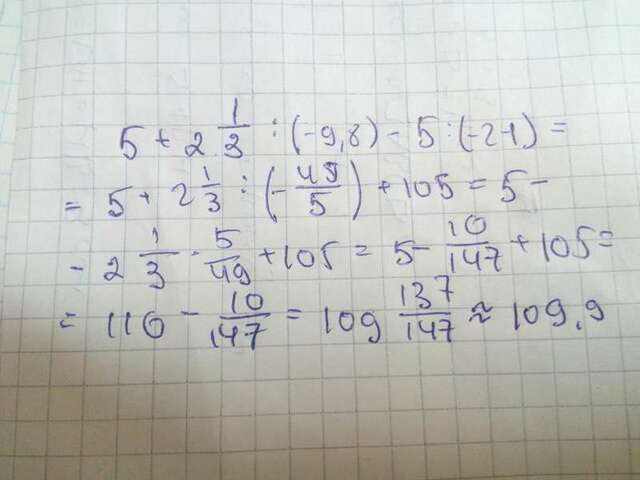 5 + 2 1/3 : (-9,8) - 5 : (-21) =
= 5 + 2 1/3 : (- 49/5) + 105 = 5 -
- 2 1/3 · 5/49 + 105 = 5 - 10/147 + 105 =
= 110 - 10/147 = 109 137/147 ≈ 109,9